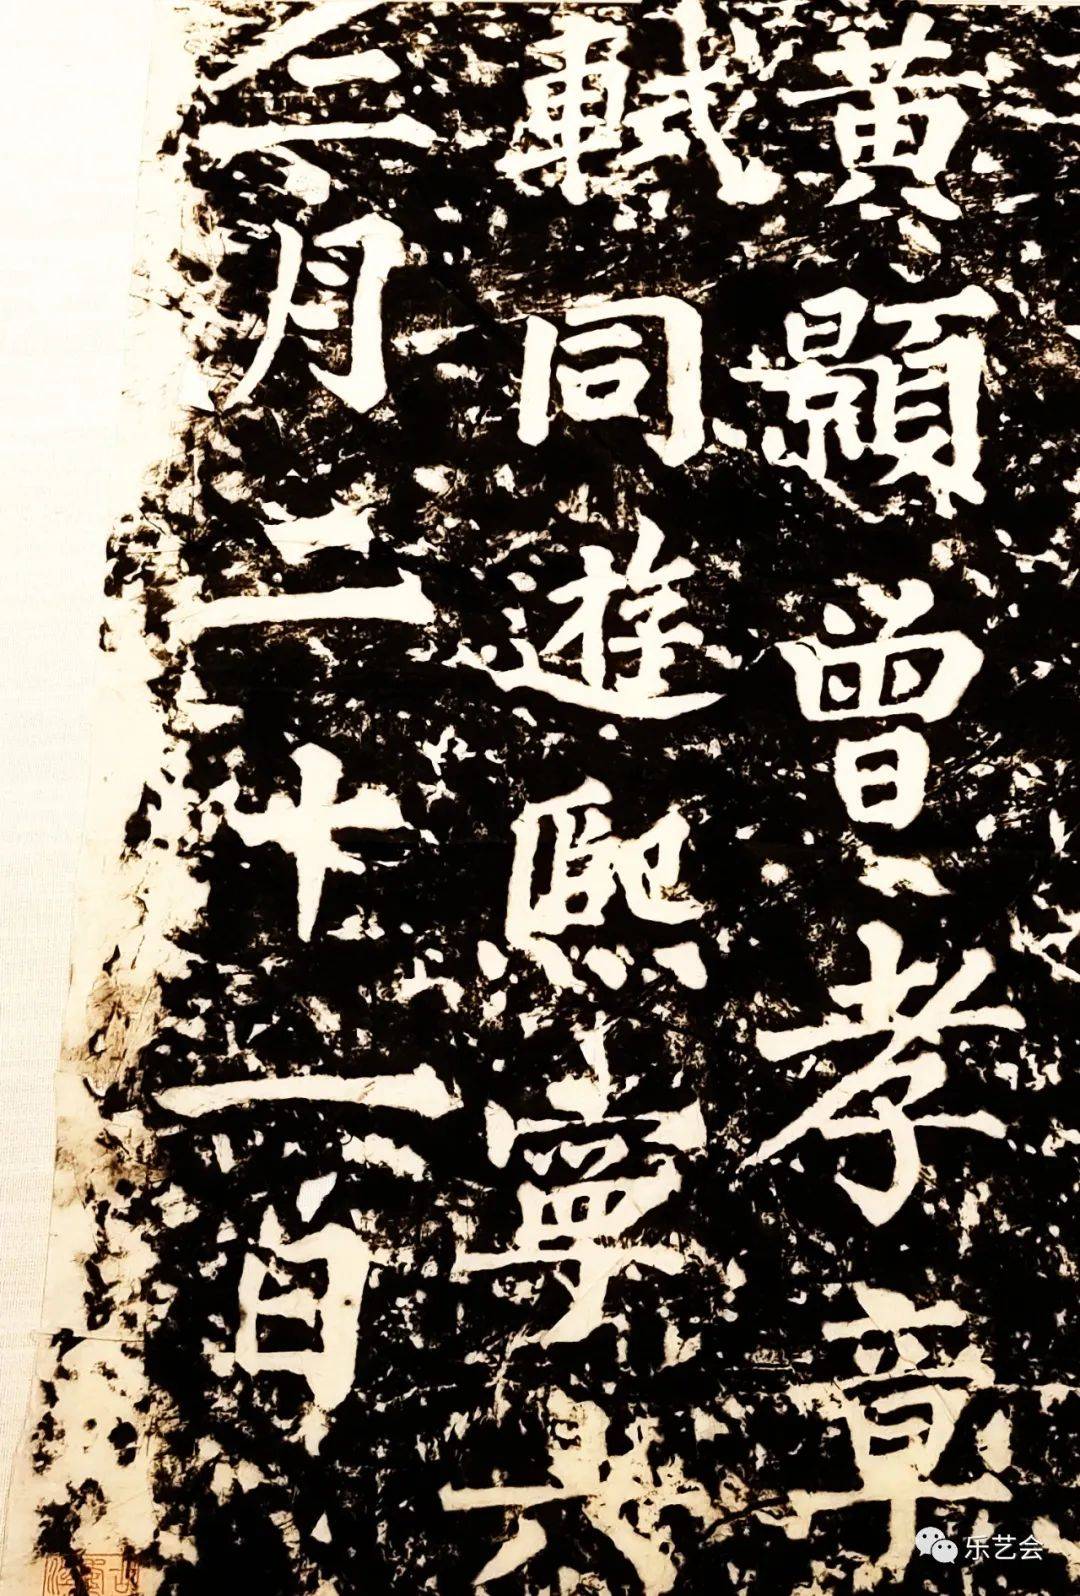 黃顥曾孝章
軾同遊熙寧六
二月二十一日
乐艺会